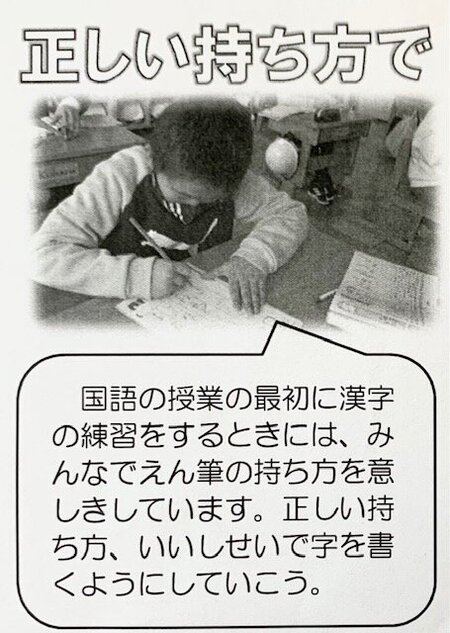 正しい持ち方で
国語の授業の最初に漢字
の練習をするときには、み
んなでえん筆の持ち方を意
しきしています。正しい持
ち方、いいしせいで字を書
くようにしていこう。